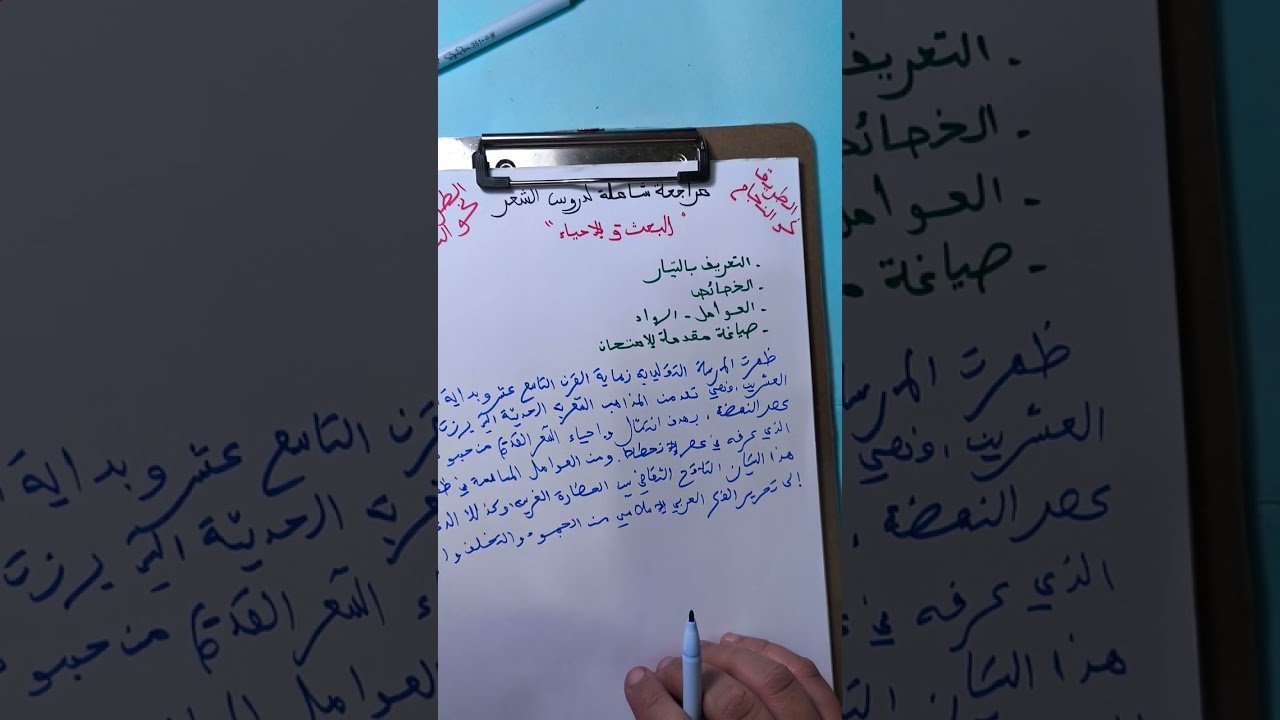 مراجعة شاملة لدروس الشعر
"البعث والإحياء"
الطريق نحو النجاح
- التعريف بالتيار
- الخصائص
- العوامل - الرواد
- صياغة مقدمة للامتحان
ظهرت المدرسة نهاية القرن التاسع عشر وبداية
العشرين، وهي تعد من المذاهب الشعرية الحديثة التي برزت
عصر النهضة، بهدف انتشال وإحياء الشعر القديم من
الذي عرفه في عصر الانحطاط. ومن العوامل المساهمة في
هذا التيار، التلاقح الثقافي بين الحضارة الغربية وكذلك
إلى تحرير الفكر العربي الإسلامي من الجمود والتخلف